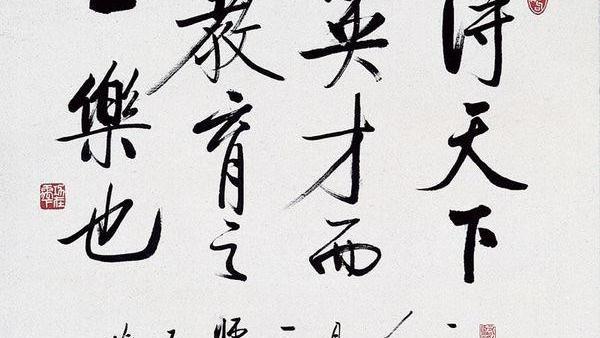 得天下
英才而
教育之
一樂也